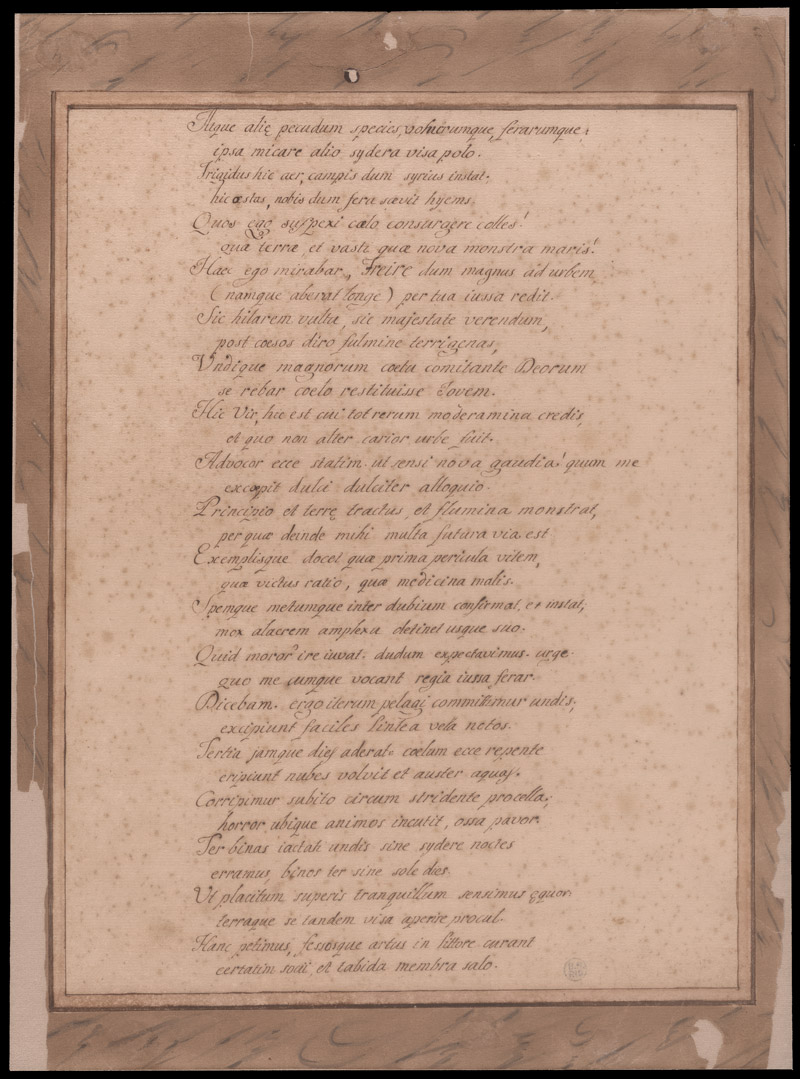 Atque alię pecudum species, volucrumque, ferarumque;
ipsa micare alio sydera visa polo.
Frigidus hic aer, campis dum syrius instat.
hic æstas, nobis dum fera sævit hyems.
Quos ego suspexi cœlo consurgere colles!
quæ terræ, et vasti quæ nova monstra maris!
Haec ego mirabar, Freire dum magnus ad urbem,
(namque aberat longe) per tua iussa redit.
Sic hilarem vultu, sic majestate verendum,
post cœsos diro fulmine terrigenas,
Undique magnorum cœtu comitante Deorum
se rebar coelo restituisse Jovem.
Hic Vir, hic est cui tot rerum moderamina credis,
et quo non alter carior urbe fuit.
Advocor ecce statim. ut sensi nova gaudia! quam me
excœpit dulci dulciter alloquio.
Principio et terrę tractus et flumina monstrat,
per quæ deinde mihi multa futura via est
Exemplisque docet quæ prima pericula vitem,
quæ victus ratio, quæ medicina malis.
Spemque metumque inter dubium confirmat, et instat,
mox alacrem amplexu detinet usque suo.
Quid moror? ire iuvat. dudum expectavimus. urge
quo me cumque vocant regia iussa ferar.
Dicebam. ergo iterum pelagi committimur undis,
excipiunt faciles lintea vela notos.
Tertia jamque dies aderat. coelum ecce repente
eripiunt nubes volvit et auster aquas.
Corripimur subito circum stridente procella,
horror ubique animos incutit, ossa pavor.
Ter binas iactati undis sine sydere noctes
erramus, binos ter sine sole dies.
Ut placitum superis tranquillum sensimus ęquor.
terraque se tandem visa aperire procul.
Hanc petimus, fessosque artus in littore curant
certatim socii, et tabida membra salo.